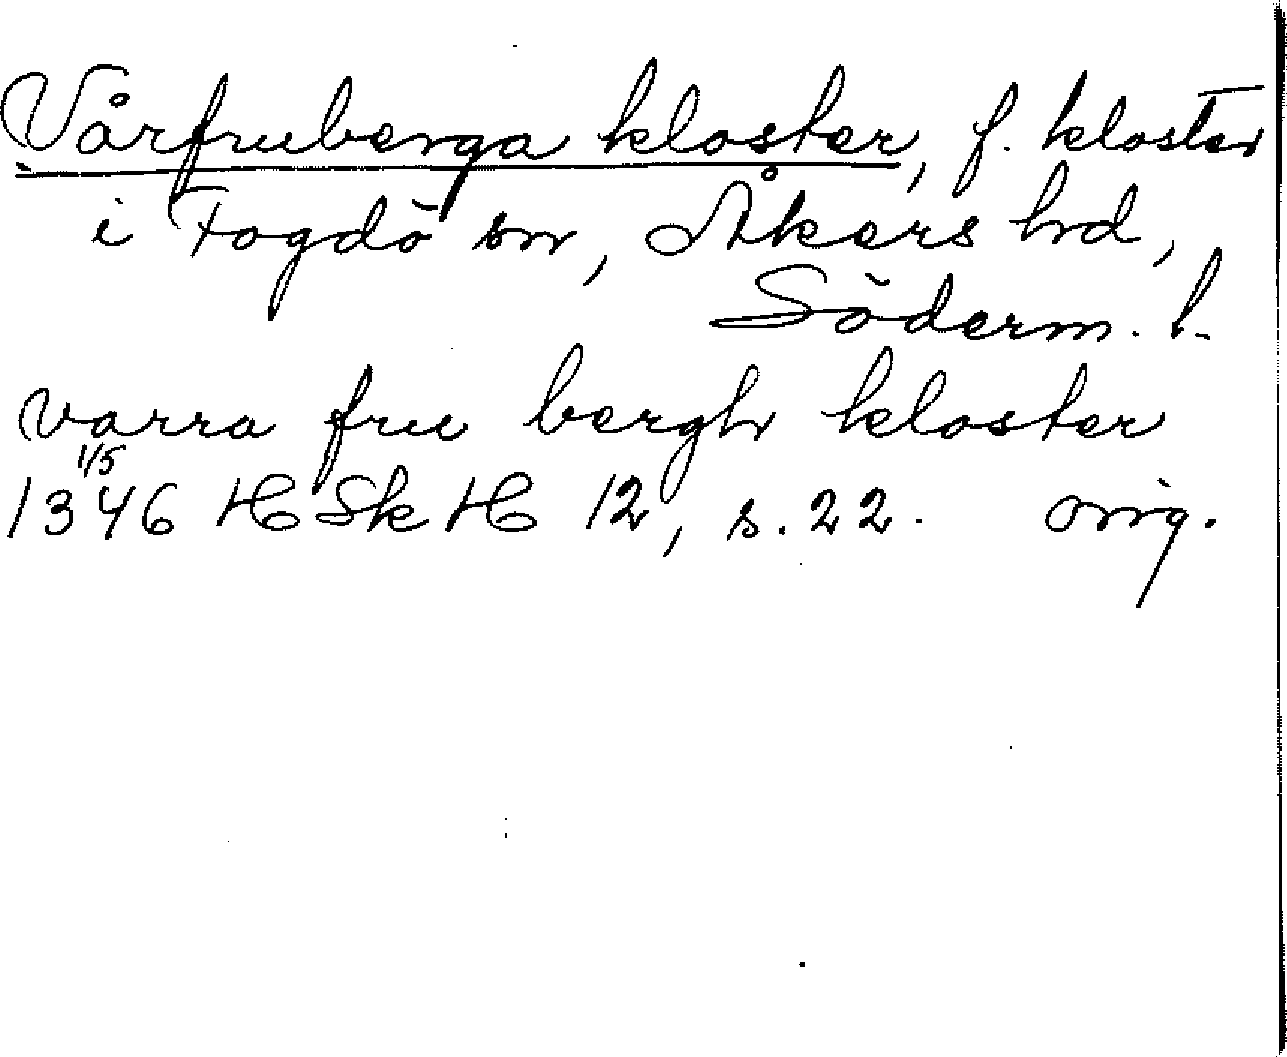 Vårfruberga kloster, f. kloster
i Fogdö sn, Åkers hd,
Söderm. l.
varra fru bergh kloster
1/5
1346 HSkH 12, s. 22. orig.